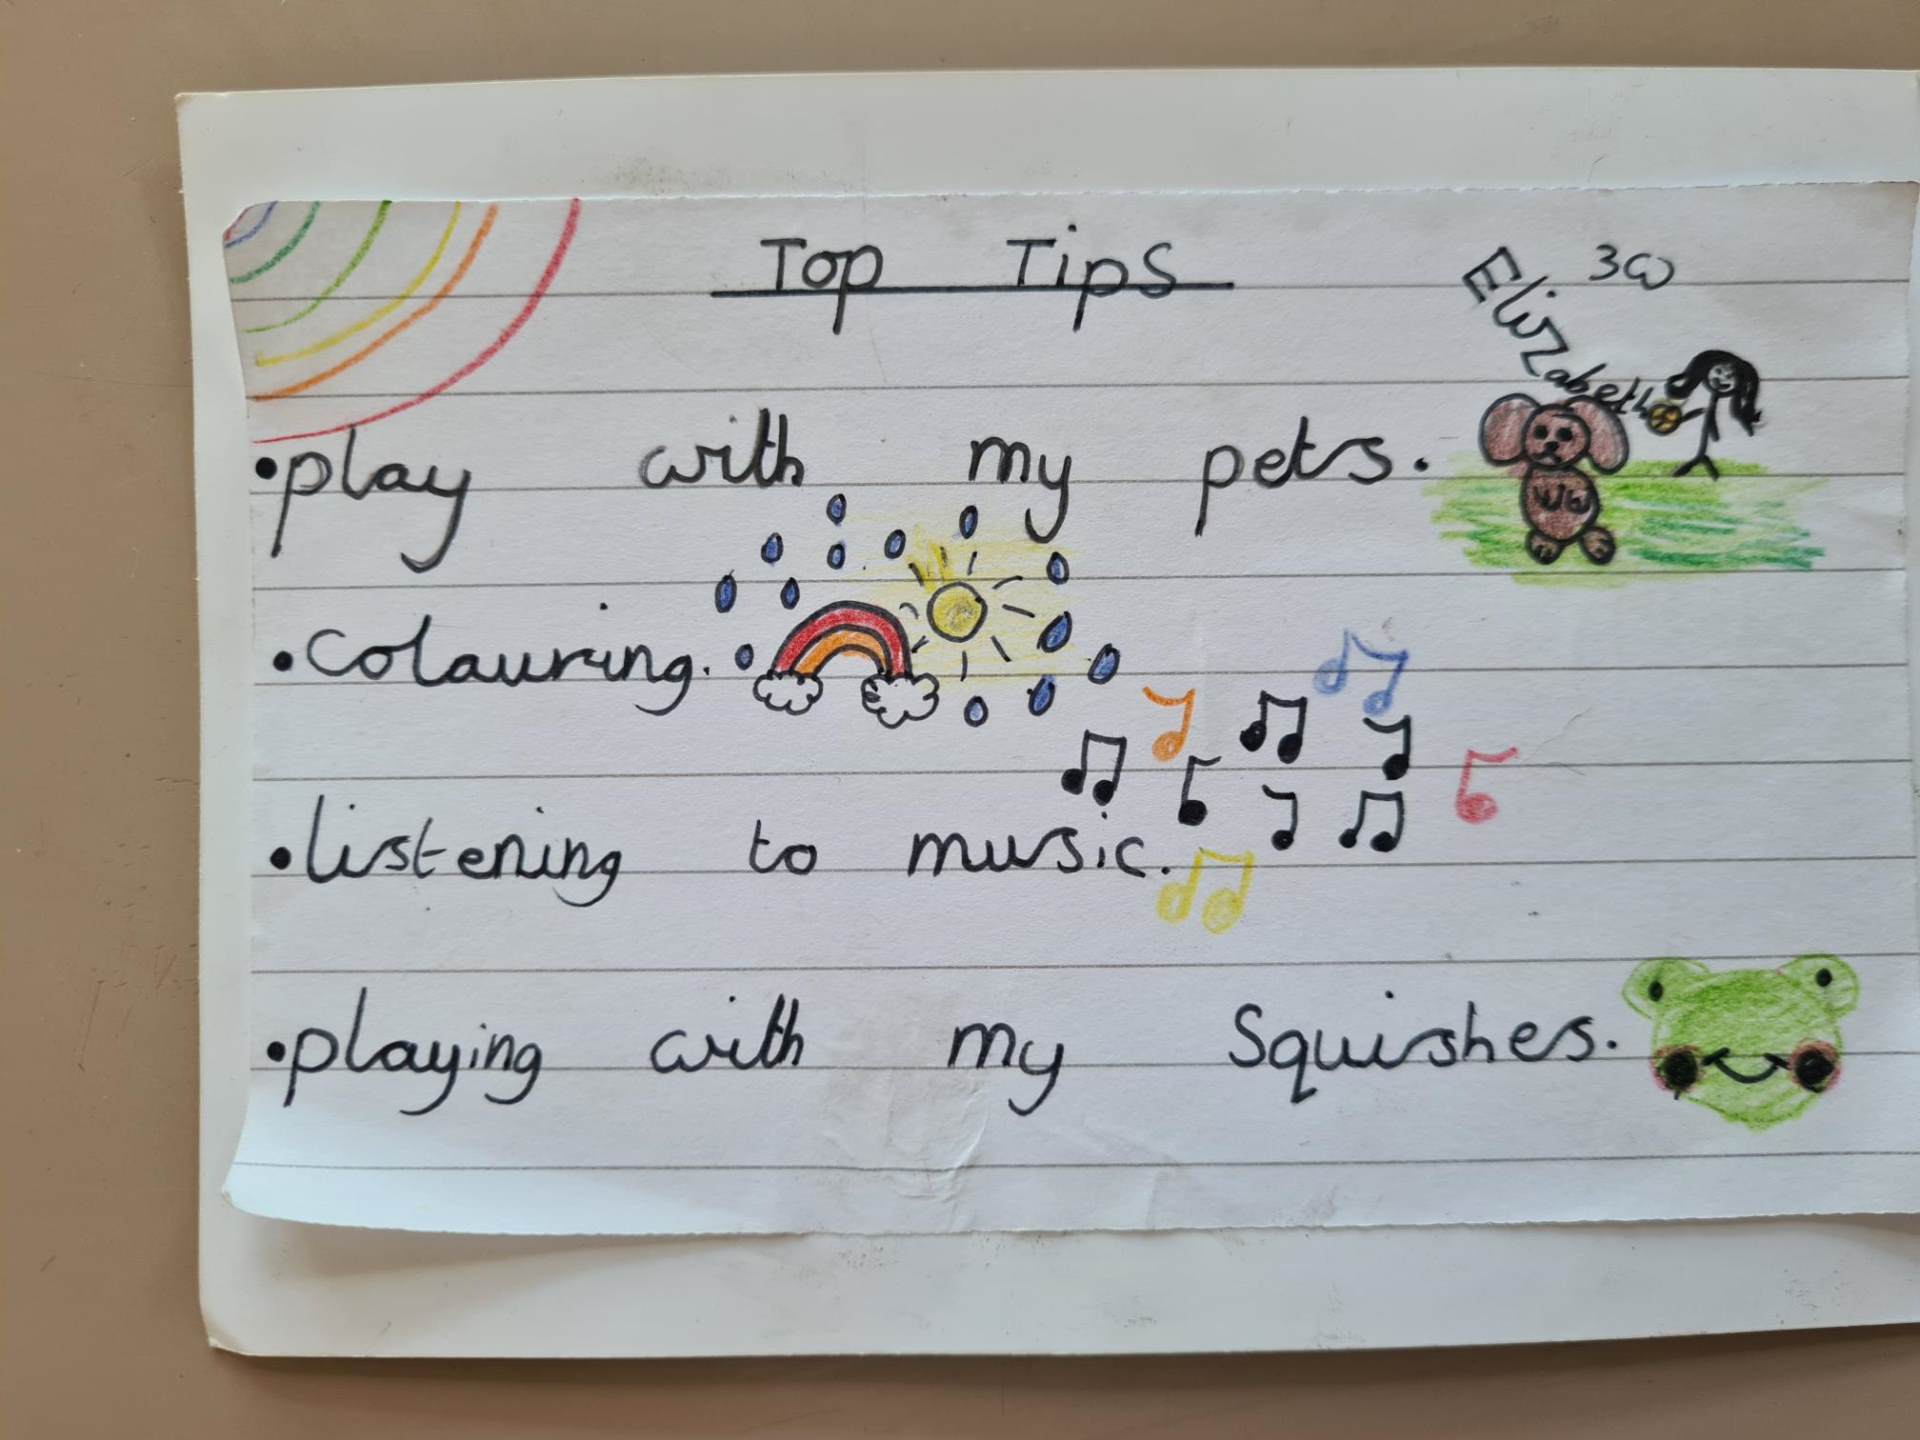 Top Tips
3W
Elizabeth
•play with my pets.
•Colouring.
•listening to music.
•playing with my Squishes.